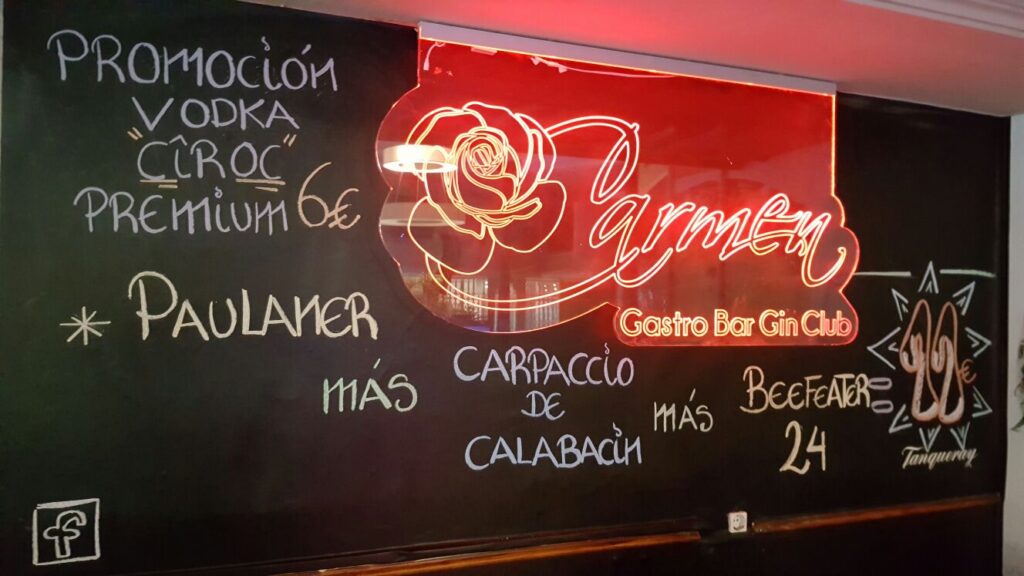 PROMOCIÓN
VODKA
"CÎROC"
PREMIUM 6€
Carmen
Gastro Bar Gin Club
* PAULANER
MÁS
CARPACCIO
DE
CALABACIN
MÁS
BEEFEATER
24
€
Tanqueray
f